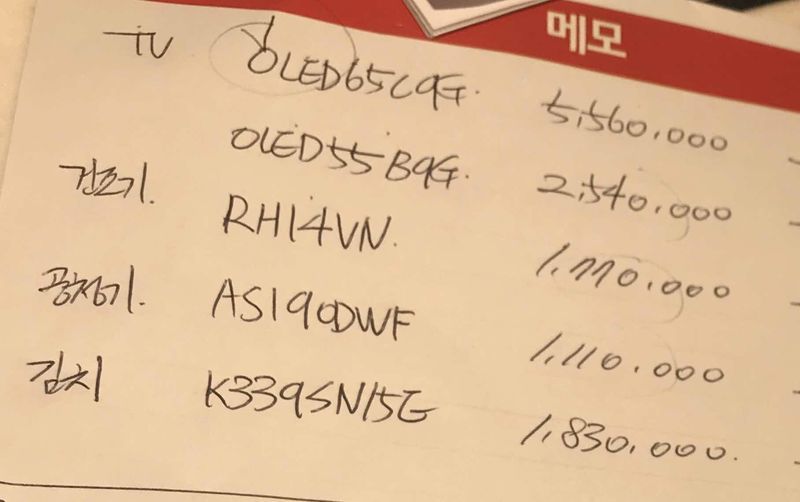 메모
TV OLED65C9G. 5,560,000
OLED55B9G. 2,540,000
건조기. RH14VN. 1,770,000
공청기. AS190DWF 1,110,000
김치 K339SN15E 1,830,000.